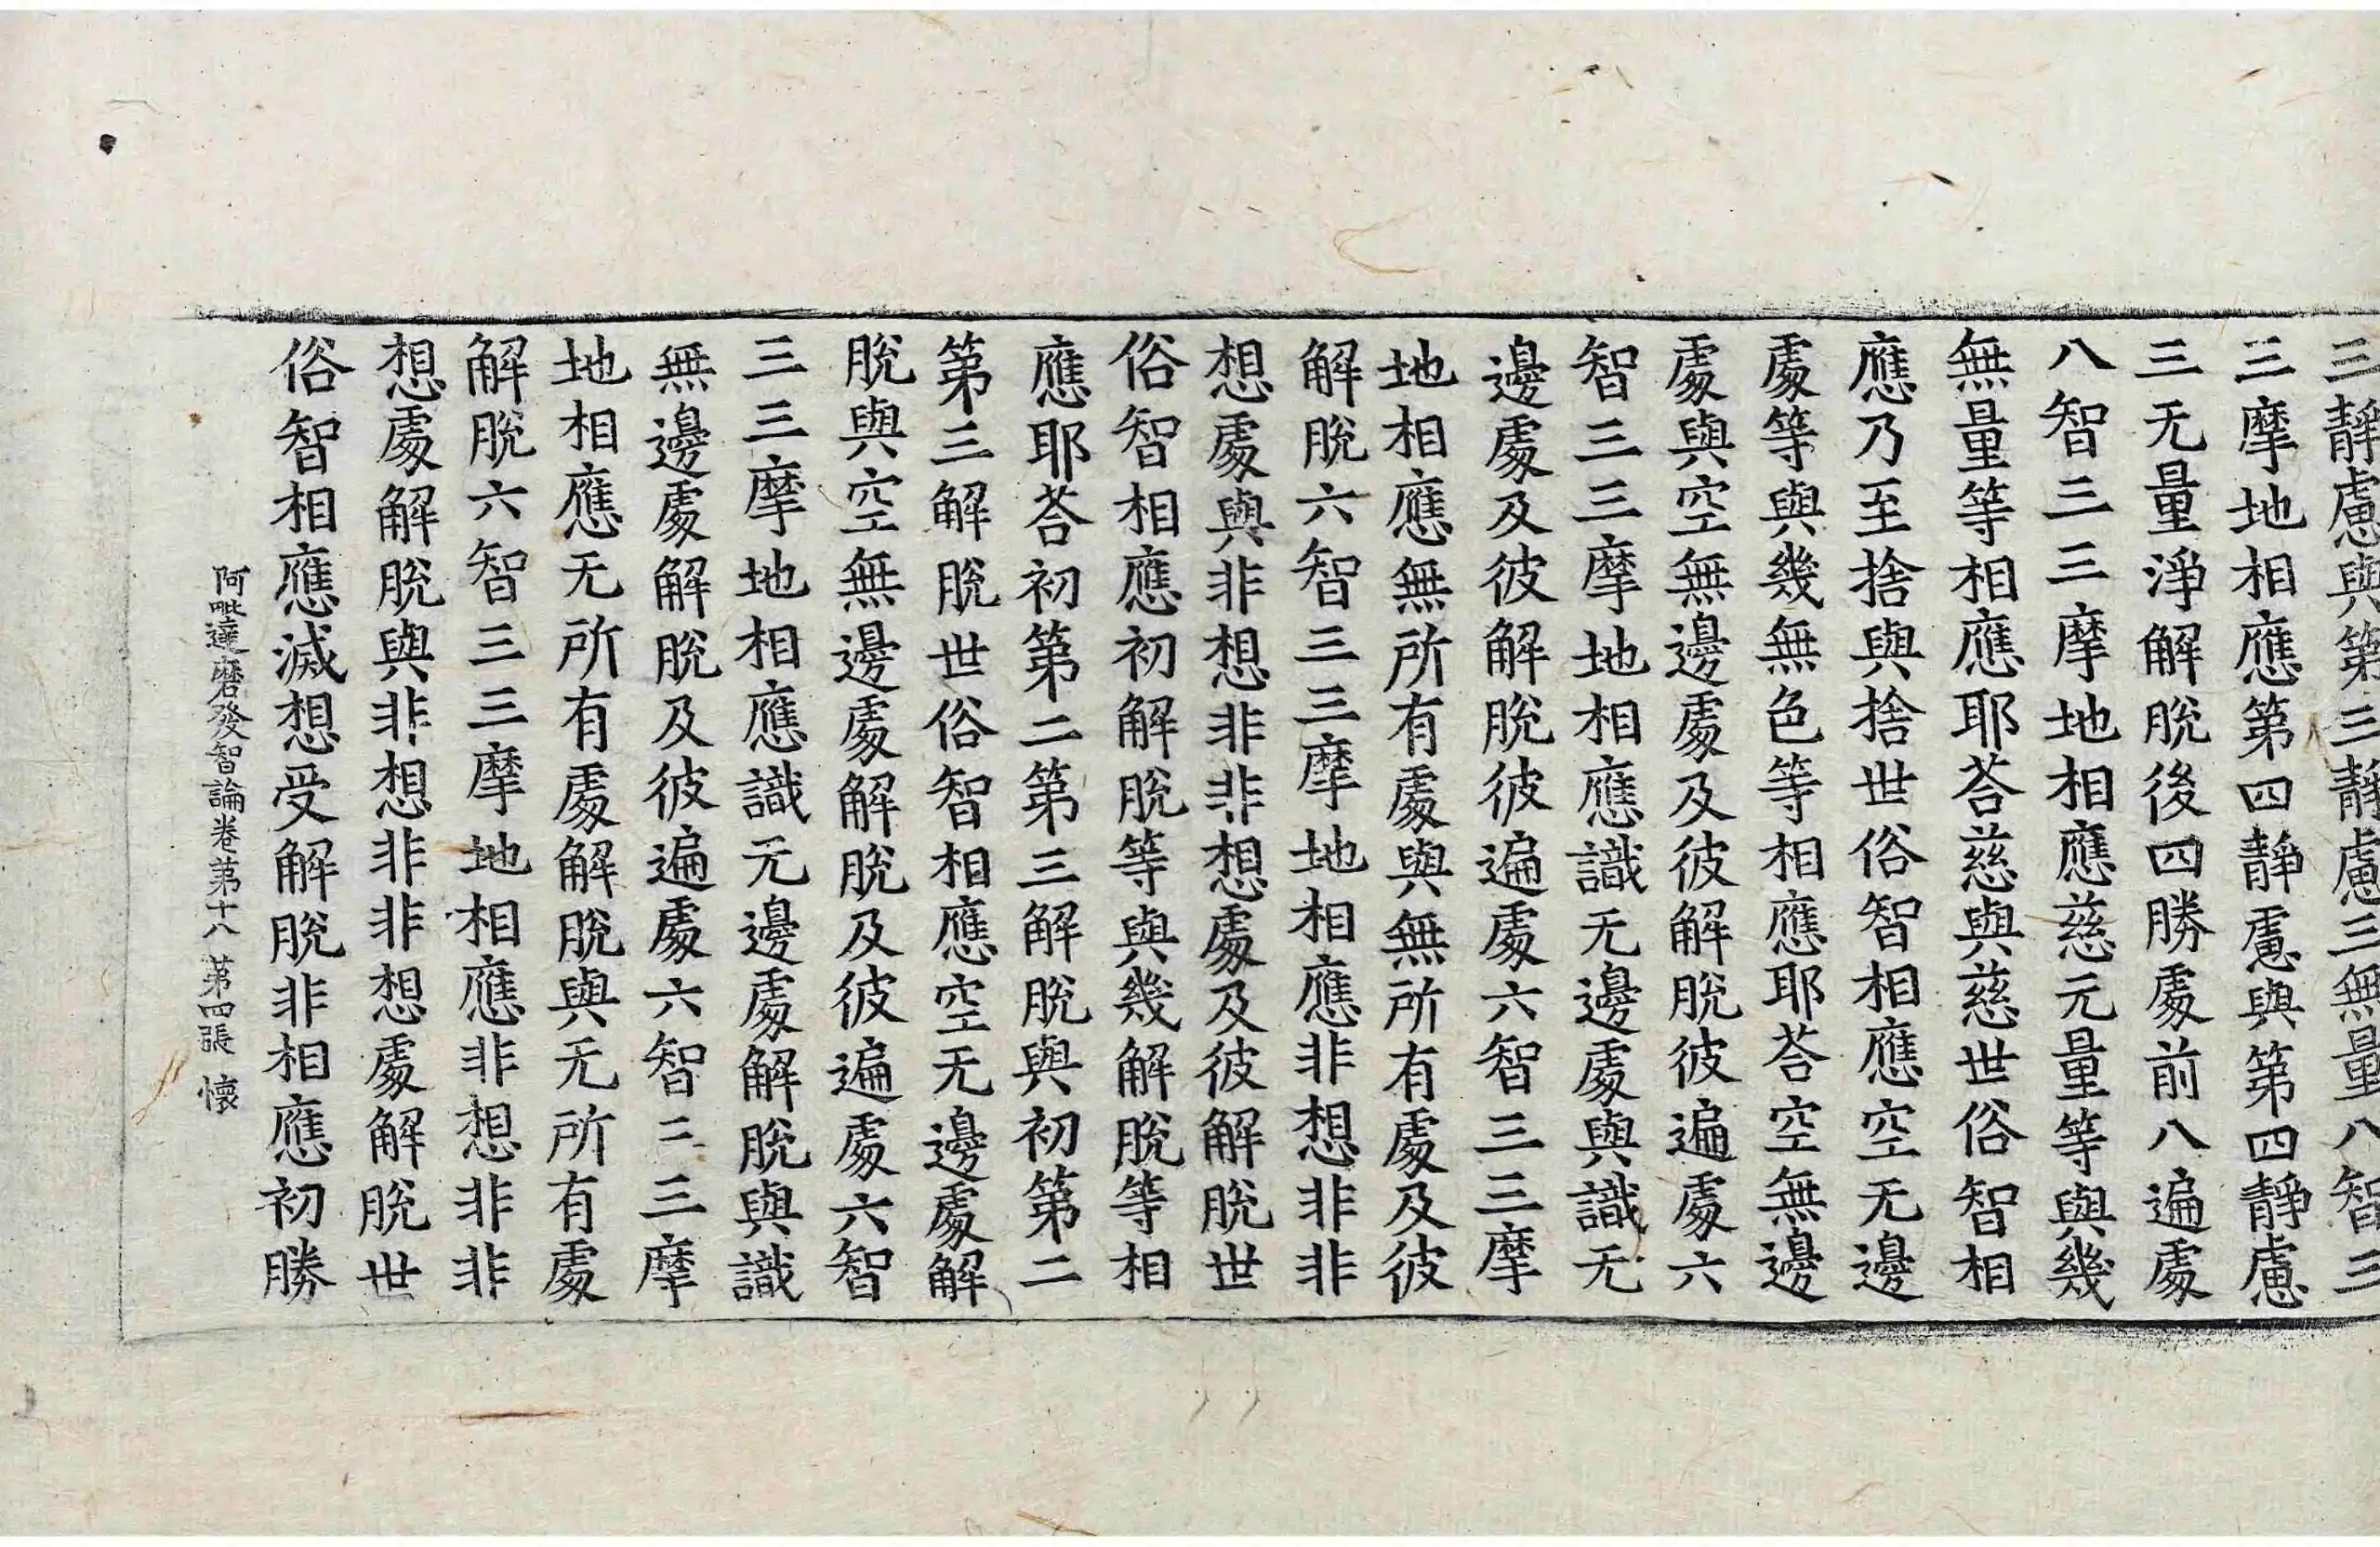 三靜慮與第三靜慮三無量八智三
三摩地相應第四靜慮與第四靜慮
三无量淨解脫後四勝處前八遍處
八智三三摩地相應慈元量等與幾
無量等相應耶荅慈與慈世俗智相
應乃至捨與捨世俗智相應空无邊
處等與幾無色等相應耶荅空無邊
處與空無邊處及彼解脫彼遍處六
智三三摩地相應識无邊處與識无
邊處及彼解脫彼遍處六智三三摩
地相應無所有處與無所有處及彼
解脫六智三三摩地相應非想非非
想處與非想非非想處及彼解脫世
俗智相應初解脫等與幾解脫等相
應耶荅初第二第三解脫與初第二
第三解脫世俗智相應空无邊處解
脫與空無邊處解脫及彼遍處六智
三三摩地相應識元邊處解脫與識
無邊處解脫及彼遍處六智二三摩
地相應无所有處解脫與无所有處
解脫六智三三摩地相應非想非非
想處解脫與非想非非想處解脫世
俗智相應滅想受解脫非相應初勝
阿毗達磨發智論卷第十八 第四張 懷